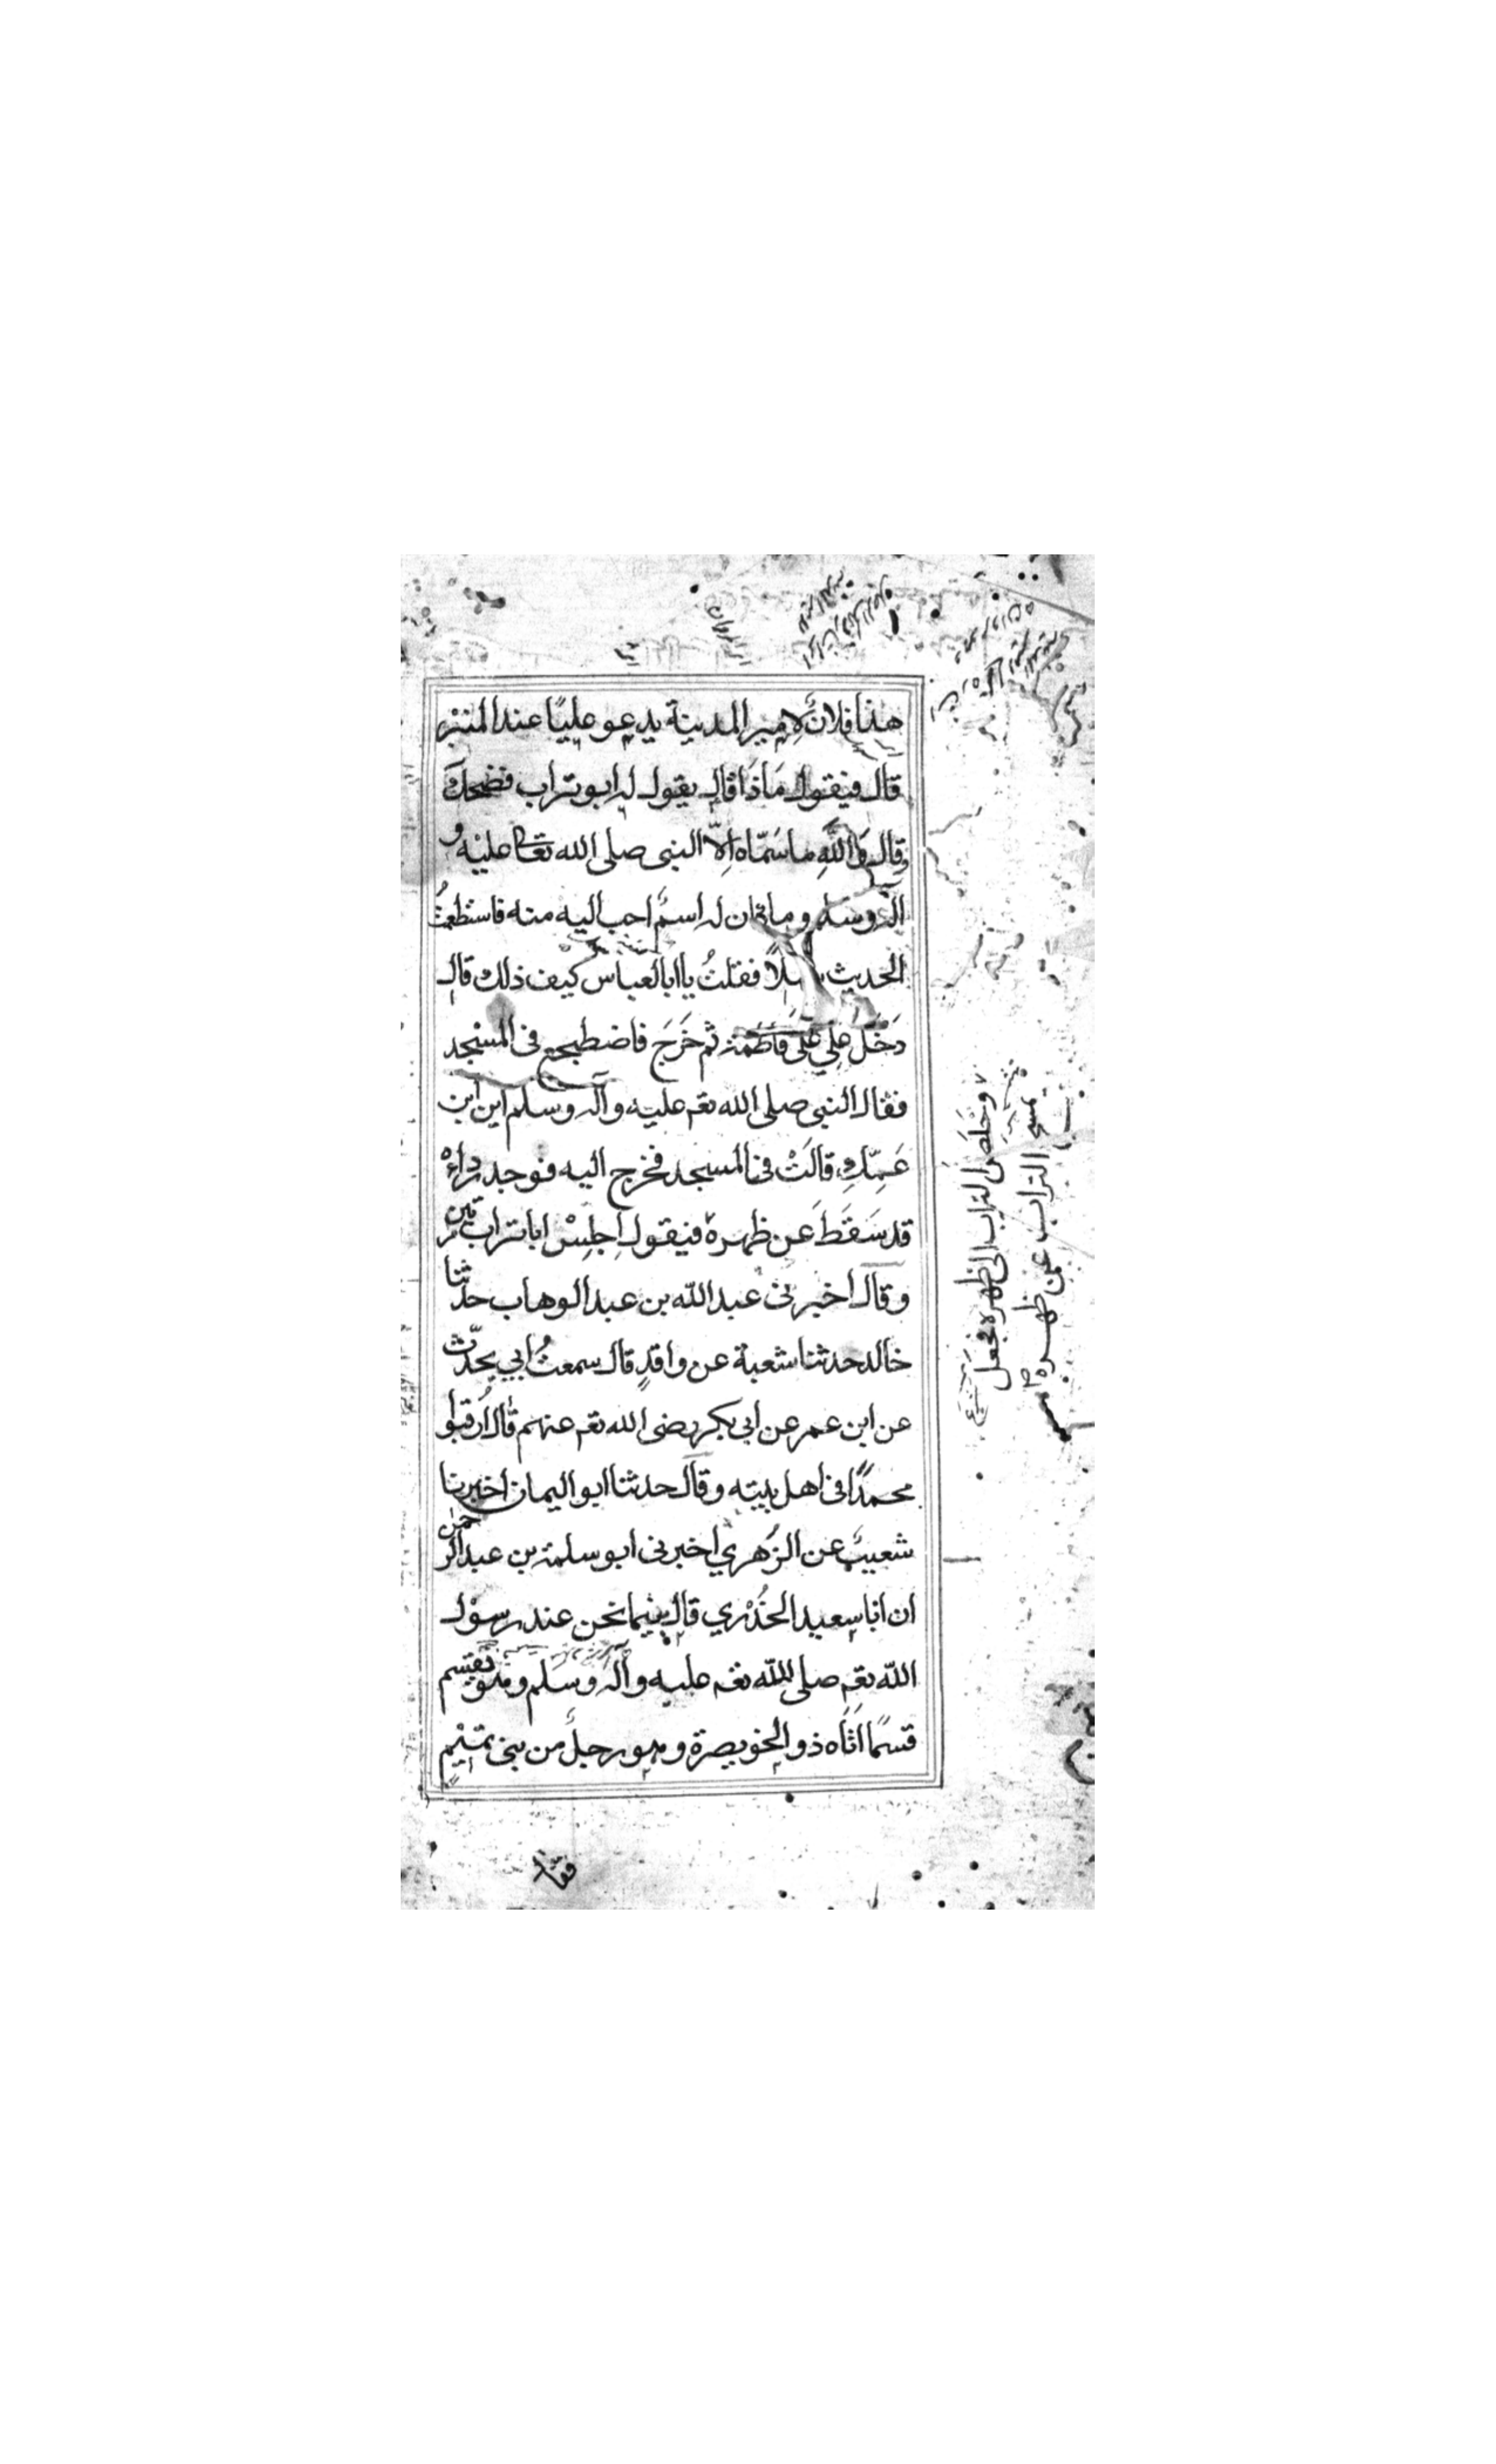 هذا فلانٌ لِامير المدينة يدعو عليًا عند المنبر
قال فيقول مَاذَا قال يقول له ابو تراب فضحكَ
وقال وَاللّٰهِ ما سَمّاه اِلّا النبى صلى الله تعالى عليْه و
آله وسلم وما كان له اسمٌ احب اليه منه فاستطعمتُ
الحديث سهلًا فقلتُ يا ابا العباس كيف ذلك قال
دَخَلَ علي عَلَى فَاطَمة ثم خَرَجَ فاضطجع فى المسْجد
فقال النبى صلى الله تعـ عليه وآله وسلم اين ابن
عَمِّكِ قالَتْ فى المسجد فخرج اليه فوجد رداءهْ
قد سَقَطَ عَن ظهره فيقول اِجلِسْ ابا تراب مرتين
وقال اخبرنى عبد الله بن عبد الوهاب حدثنا
خالد حدثنا شعبة عن واقدٍ قال سمعتُ ابي يحدّث
عن ابن عمر عن ابى بكر رضى الله تعـ عنهم قال اُرقبوا
محمدًا فى اهل بيته وقال حدثنا ابو اليمان اخبرنا
شعيبٌ عن الزُهري اخبرنى ابو سلمة بن عبد الرحمن
ان ابا سعيد الخُدْري قال بينما نحن عند رسوْل
الله تعـ صلى الله تعـ عليه وآله وسَلم وهو يَقْسِم
قسمًا اَتَاه ذو الخويصرة وهو رجلٌ من بنى تميْم
وخَلَصَ التراب الى ظهره فجعل
يمسح التراب عن ظهره
فقال